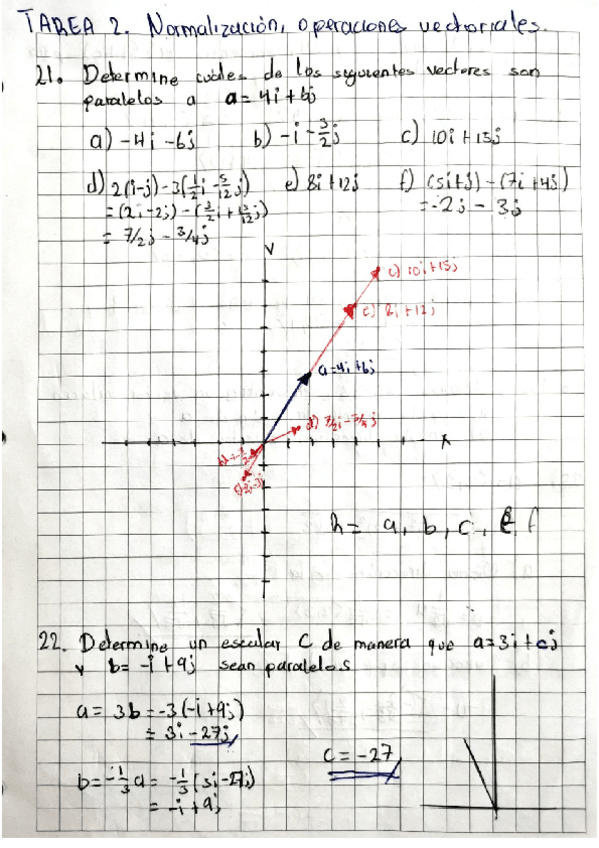 TAREA 2. Normalización, operaciones vectoriales.
21. Determine cuáles de los siguientes vectores son
paralelos a a = 4i + 6j
a) -4i - 6j b) -i - 3/2 j c) 10i + 15j
d) 2(i-j) - 3(1/2 i - 5/12 j) e) 8i + 12j f) (5i+j) - (7i + 4j)
= (2i - 2j) - (3/2 i + 15/12 j) = -2j - 3j
= 7/2 j - 3/4 j
Y
c) 10i + 15j
e) 8i + 12j
a = 4i + 6j
d) 7/2 i - 3/4 j
X
R = a, b, c, e, f
22. Determine un escalar C de manera que a = 3i + cj
y b = -i + 9j sean paralelos
a = 3b = -3(-i + 9j)
= 3i - 27j
C = -27
b = -1/3 a = -1/3 (3i - 27j)
= -i + 9j